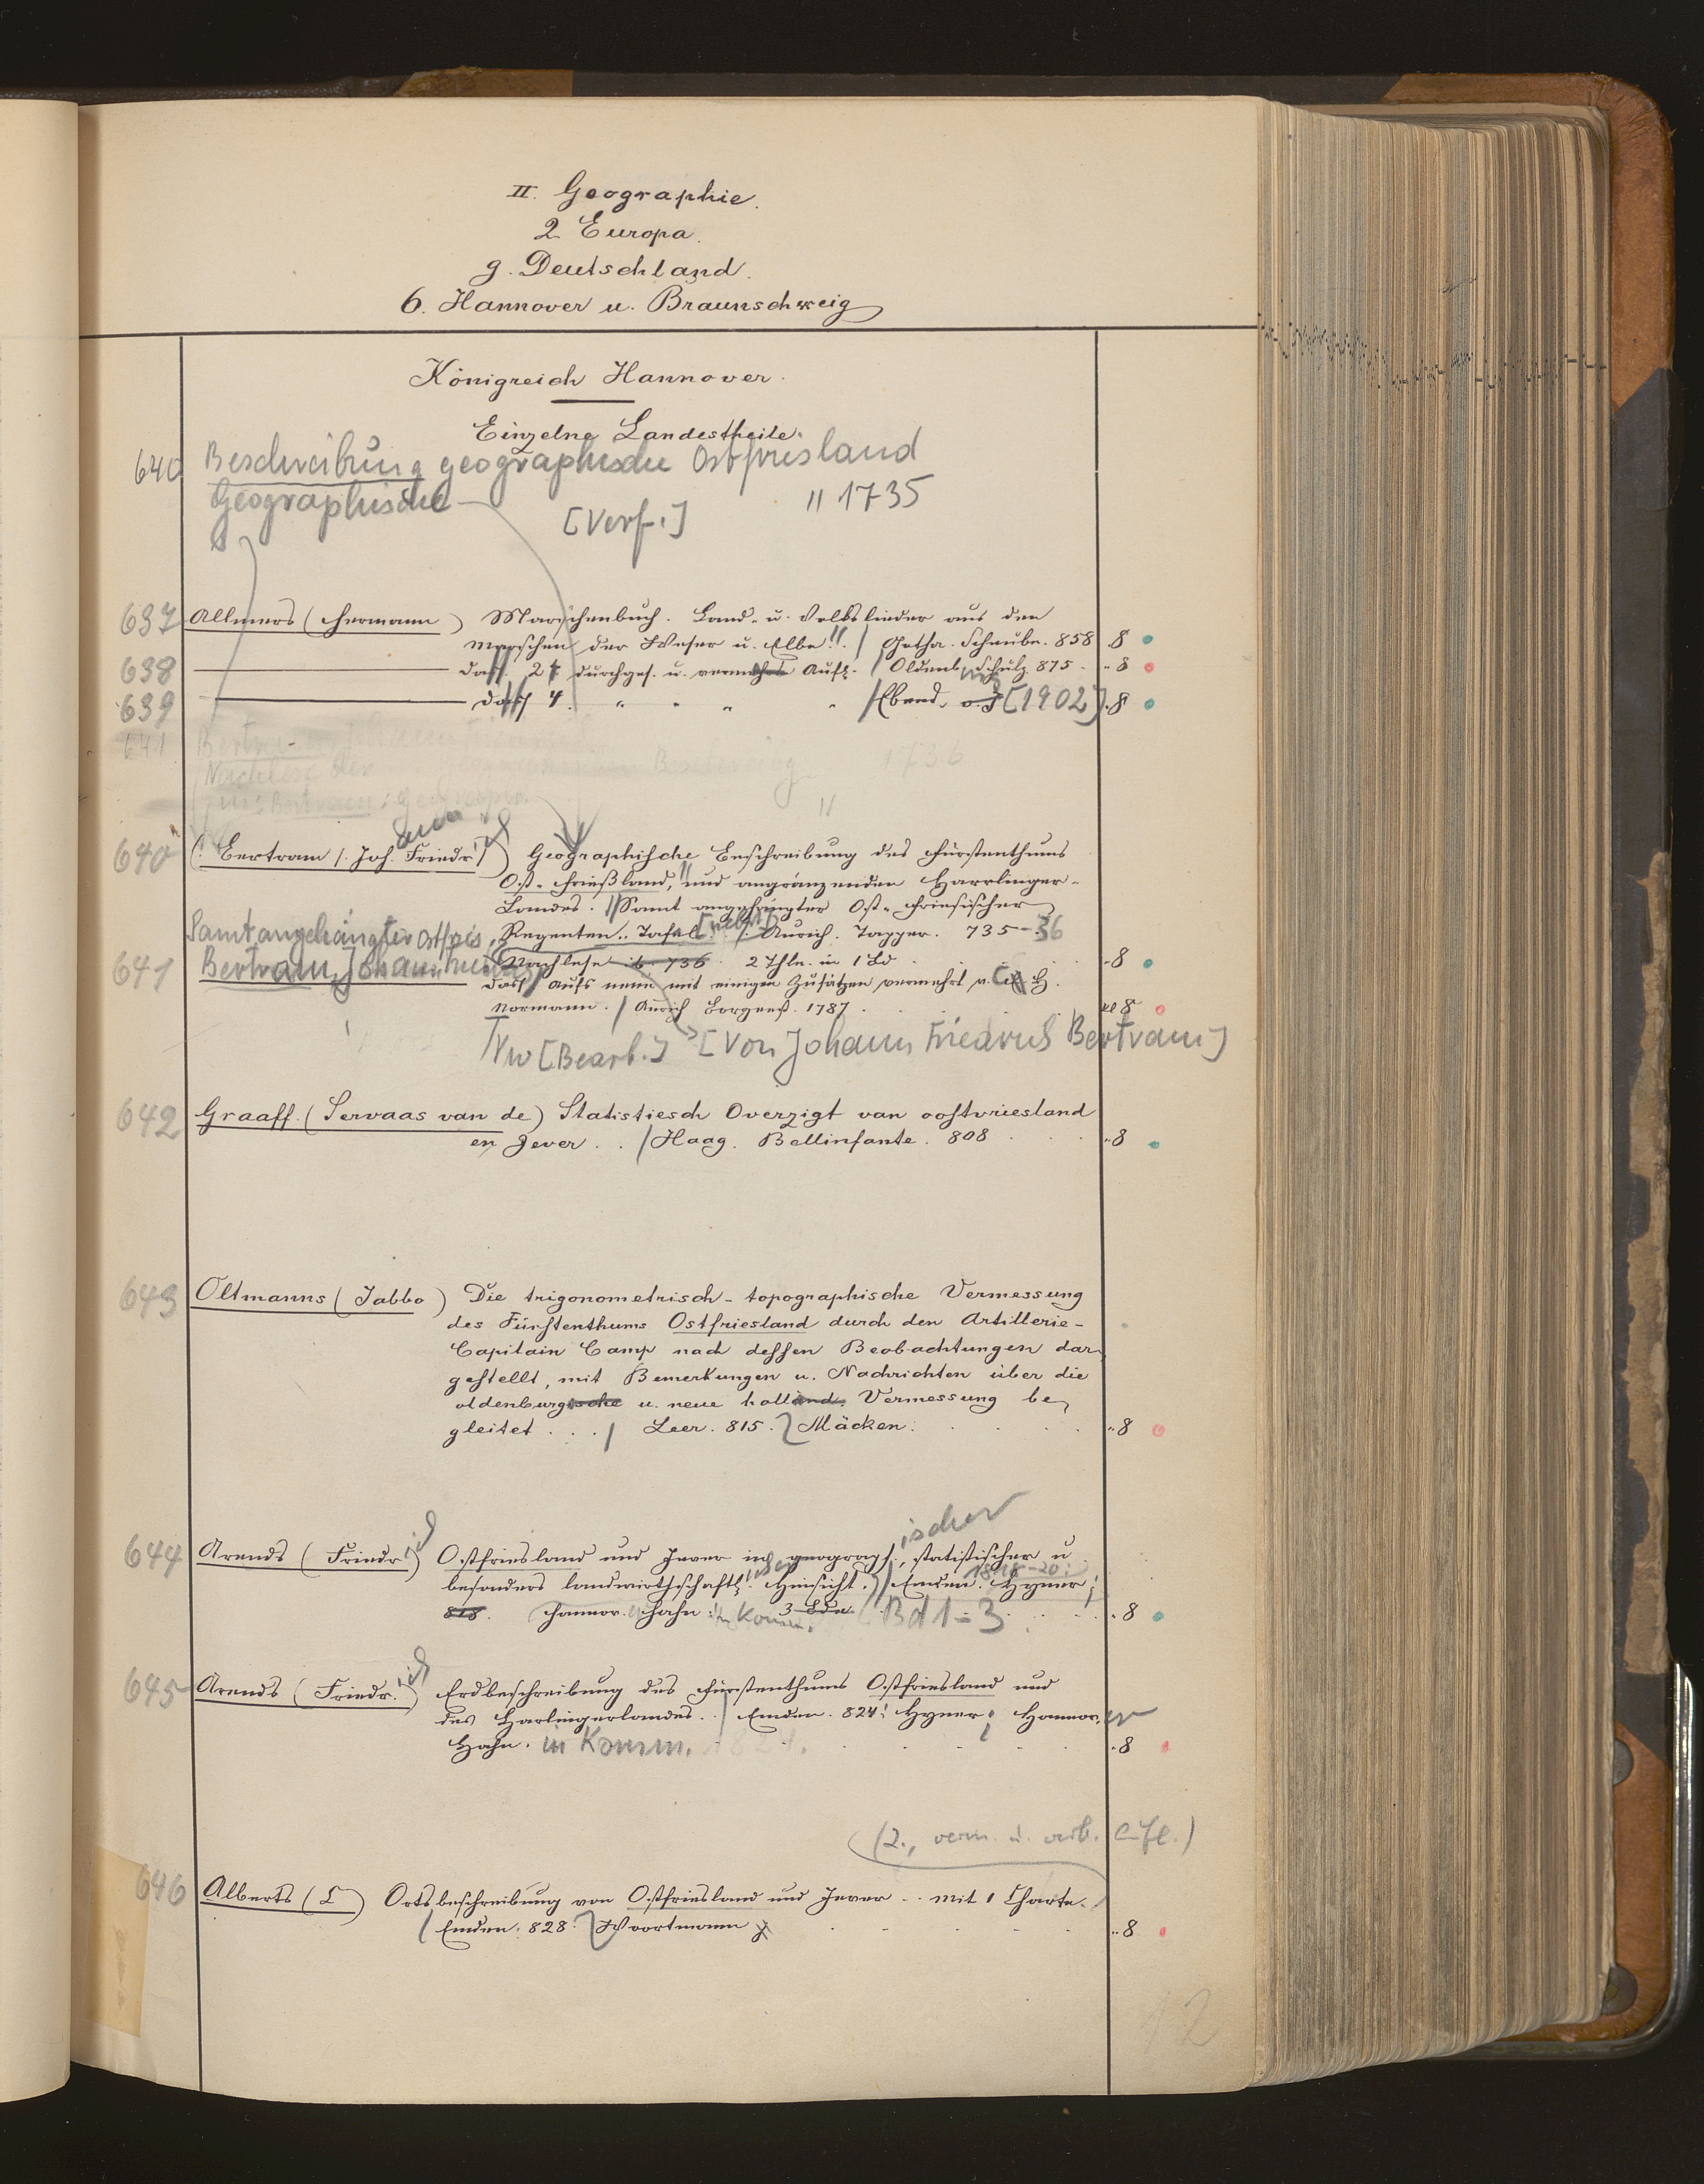 II. Geographie.
2 Europa.
g. Deutschland.
6. Hannover u. Braunschweig
Königreich Hannover.
Einzelne Landestheile.
640 Beschreibung geographische Ostfriesland
Geographische
[Verf.] 1735
637 Allmers (Hermann) Marschenbuch. Land- u. Volks
Marschen der Weser u. Elbe. / Gotha. Scheube. 858 8
638 dass. 2 durchges. u. vermehrte Aufl. / Oldenb. Schulz. 875. 8
639 dass. 4. " " " " / Ebend. o. J. [1902] 8
641 Bertra
Nachlese der Geographischen 1736
640 (Bertram /. Joh. Friedr.) Geographische Beschreibung des Fürstenthums
Ost-Frießland, und angränzenden Harrlinger-
Landes. Samt angehängter Ost-Friesischer
Samt angehängter Ostfries. Regenten-Tafel. [nebst] Aurich. Tapper. 735-36
641 Bertram, Johann Nachlese 736 2 Thle. in 1 Bd 8
dass. Aufs neue mit einigen Zusätzen vermehrt v. H.
Normann. / Aurich Borgeest. 1787. 8
Vw [Bearb.] [Von Johann Friedrich Bertram]
642 Graaff (Servaas van de) Statistiesch Overzigt van oostvriesland
en Jever . . / Haag. Bellinfante. 808 8
643 Oltmanns (Jabbo) Die trigonometrisch-topographische Vermessung
des Fürstenthums Ostfriesland durch den Artillerie-
Capitain Camp nach dessen Beobachtungen dar-
gestellt, mit Bemerkungen u. Nachrichten über die
oldenburgische u. neue holländ. Vermessung be-
gleitet . . . / Leer. 815. Mäcken. 8
ischer
644 Arends (Friedrich) Ostfriesland und Jever in geograph., statistischer u.
besonders landwirthschaftl. Hinsicht. / Emden. 1818-20. Hyner;
818. Hannov. Hahn: in Komm. 3 Bde (Bd 1-3 8
645 Arends (Friedr.ich) Erdbeschreibung des Fürstenthums Ostfriesland und
des Harlingerlandes. / Emden. 824. Hyner; Hannover
Hahn. in Komm. 1824. 8
(2., verm. u. verb. Aufl.)
646 Alberts (L) Ortsbeschreibung von Ostfriesland und Jever . . mit 1 Charte.
/ Emden. 828. Woortmann 8
12